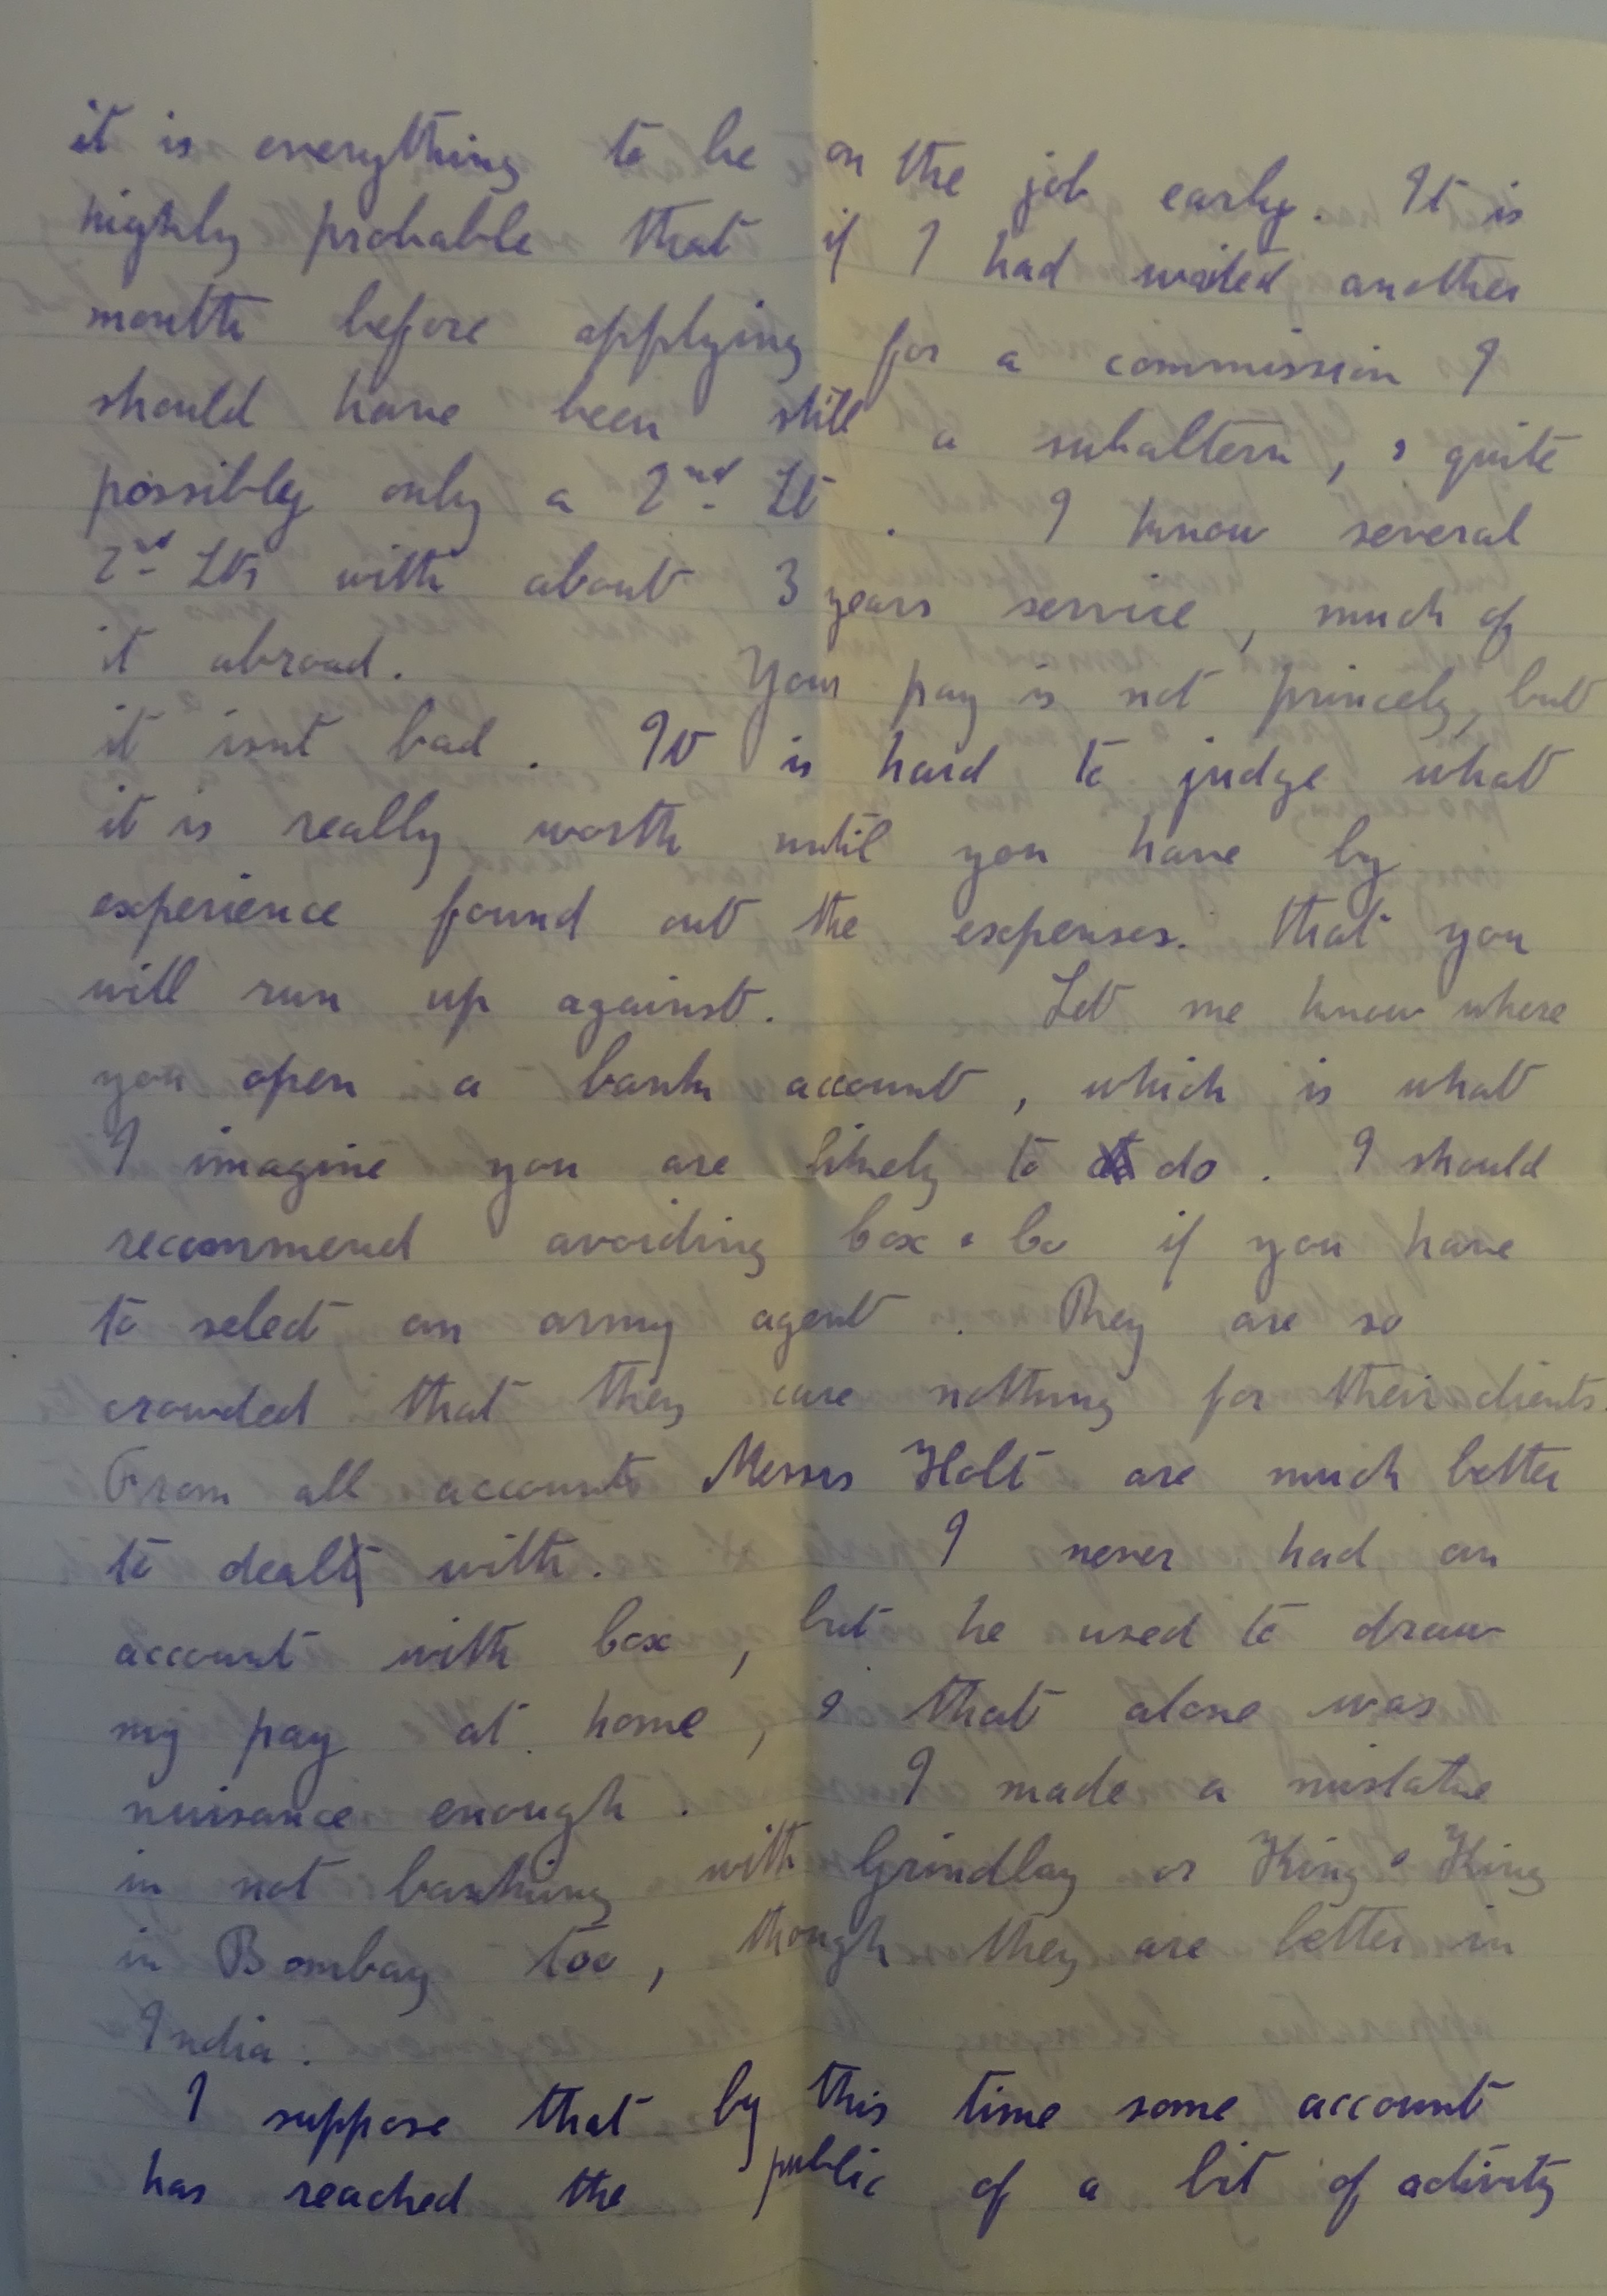 it is everything to be on the job early. It is
highly probable that if I had waited another
month before applying for a commission I
should have been still a subaltern, & quite
possibly only a 2nd Lt. I know several
2nd Lts with about 3 years service, much of
it abroad. Your pay is not princely, but
it isnt bad. It is hard to judge what
it is really worth until you have by
experience found out the expenses. that you
will run up against. Let me know where
you open a bank account, which is what
I imagine you are likely to do. I should
recommend avoiding Cox & Co if you have
to select an army agent. They are so
crowded that they care nothing for their clients.
From all accounts Messrs Holt are much better
to deal with. I never had an
account with Cox, but he used to draw
my pay at home, & that alone was
nuisance enough. I made a mistake
in not banking with Grindlay or King & King
in Bombay too, though they are better in
India.
I suppose that by this time some account
has reached the public of a bit of activity